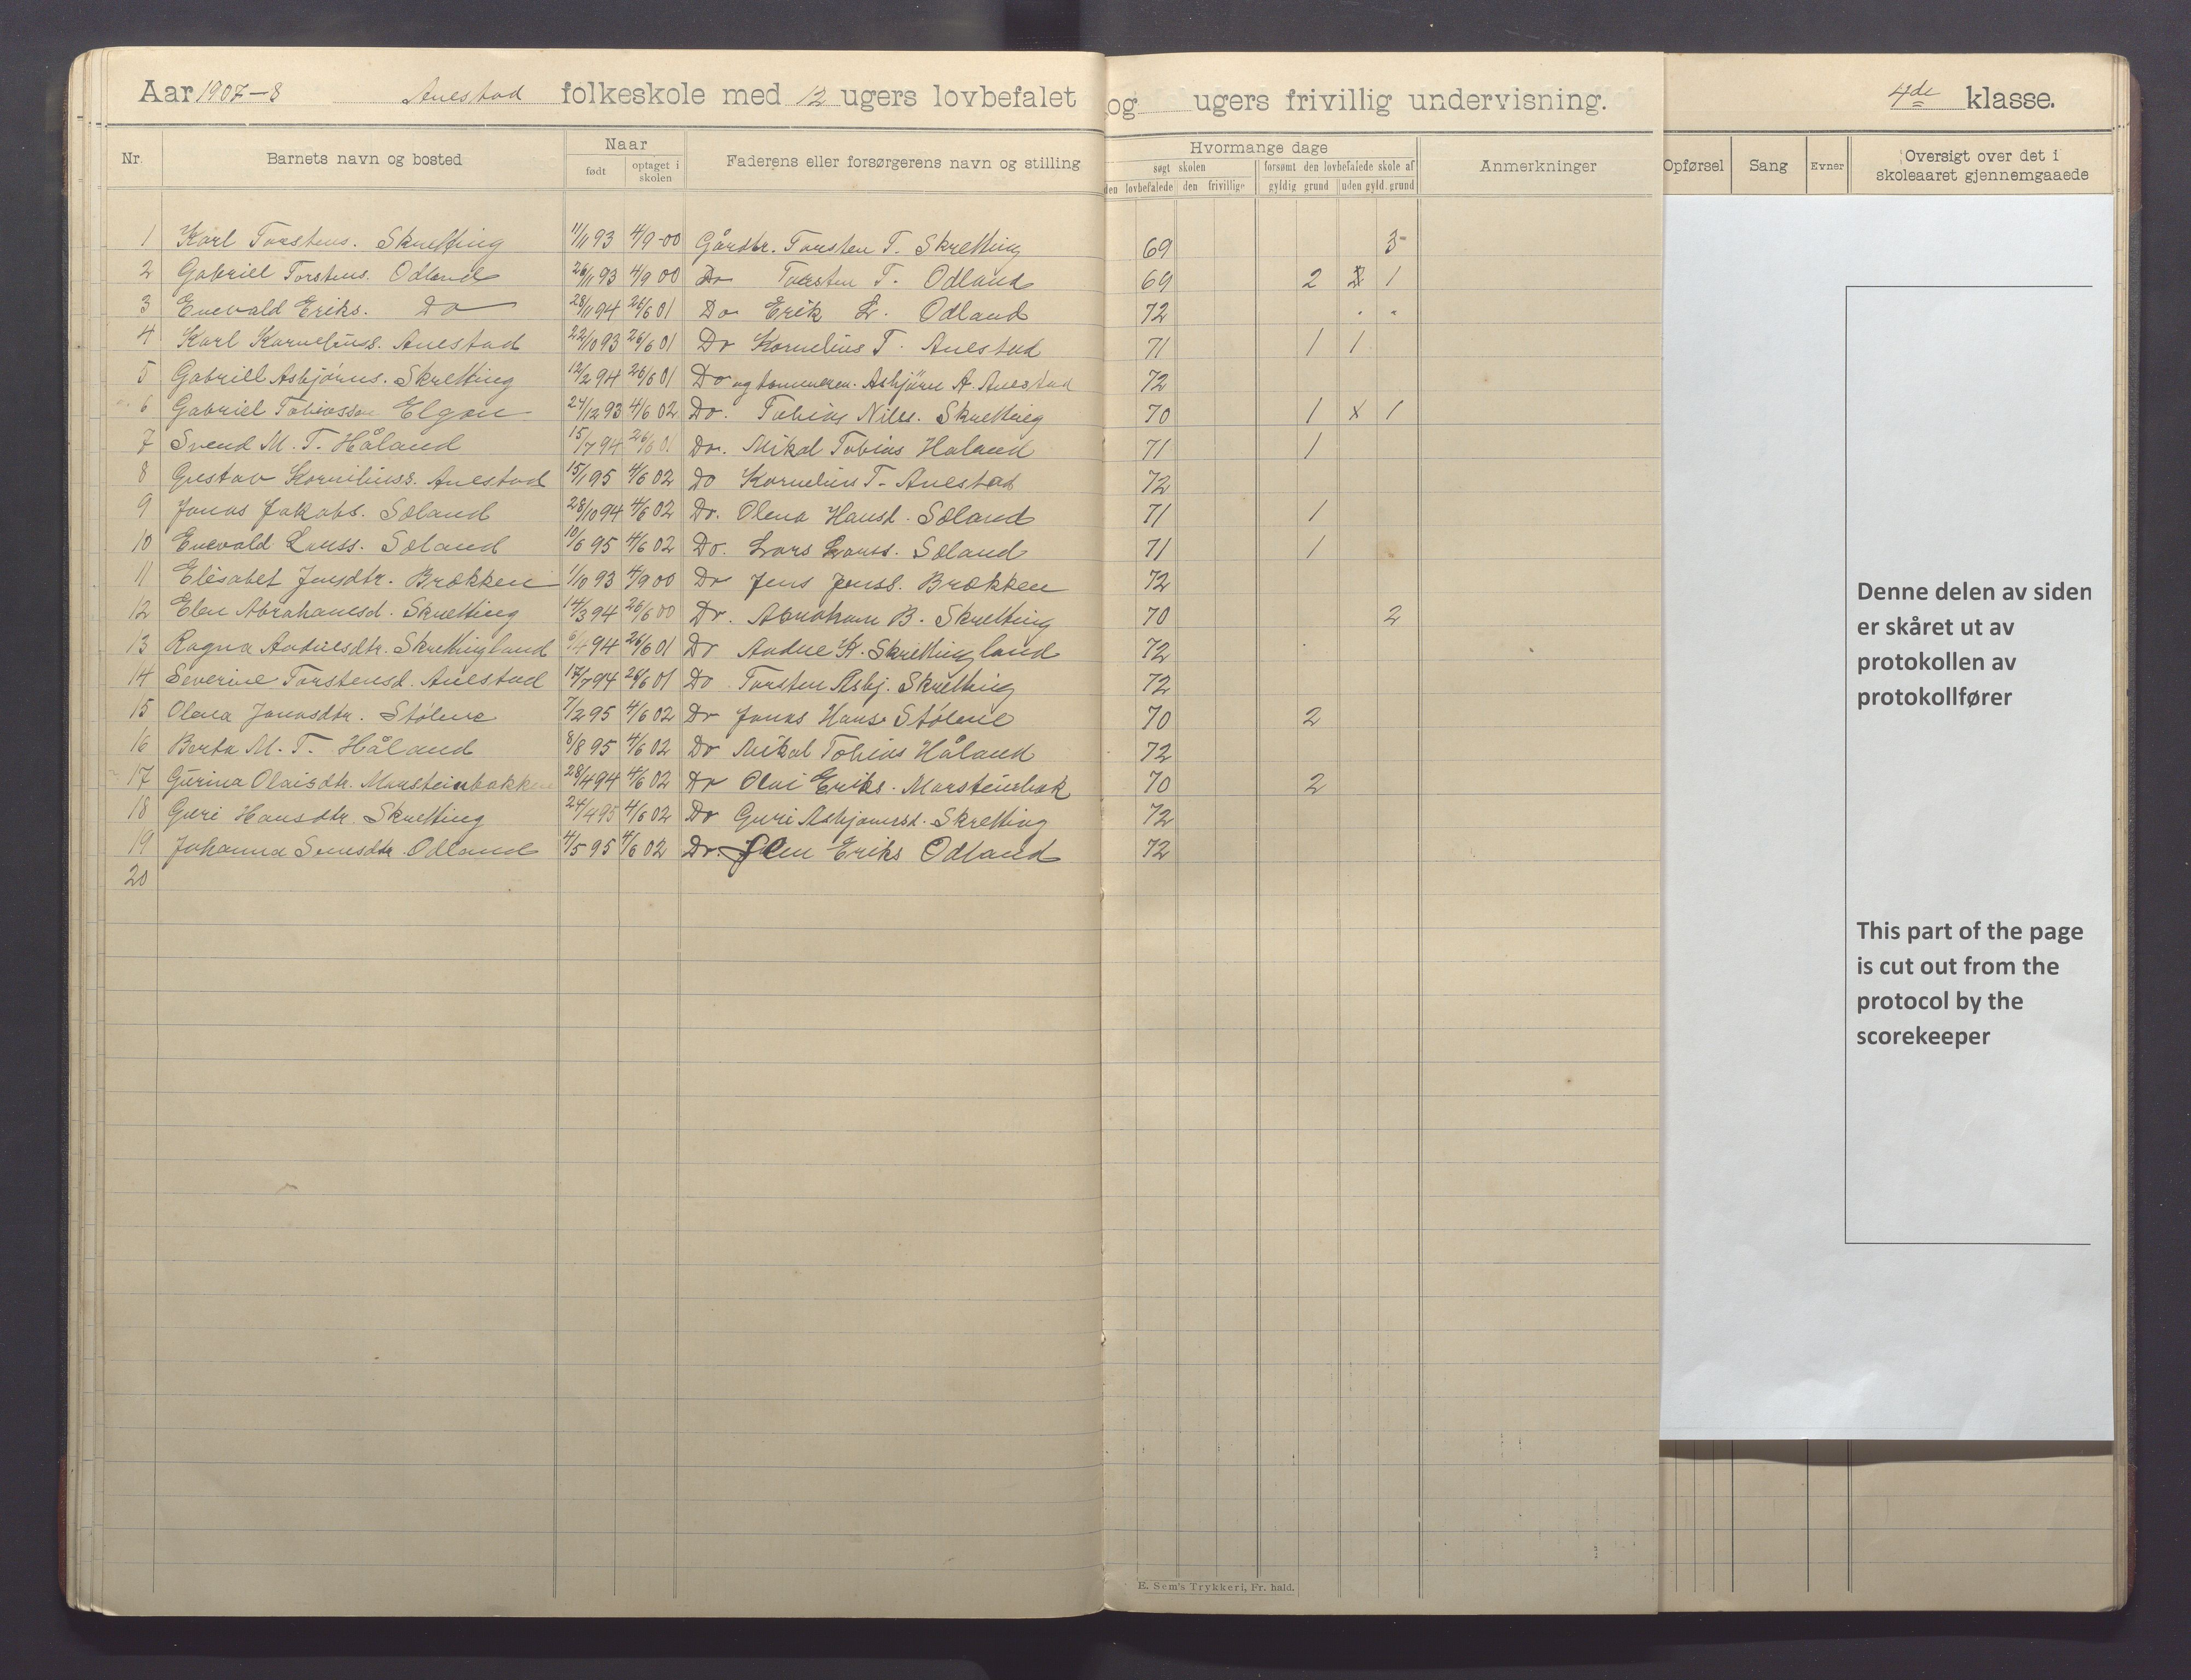 Aar 1907-8 Auestad folkeskole med 12 ugers lovbefalet og ugers frivillig undervisning. 4de klasse.
Nr. Barnets navn og bosted Naar Faderens eller forsørgerens navn og stilling Hvormange dage Anmerkninger Opførsel Sang Evner Oversigt over det i skoleaaret gjennemgaaede
født optaget i skolen søgt skolen forsømt den lovbefalede skole af
den lovbefalede den frivillige gyldig grund uden gyld. grund
1 Karl Torstens. Skretting 11/11 93 4/9-00 Gårdbr. Torsten T. Skretting 69 3
2 Gabriel Torstens. Odland 26/11 93 4/9 00 Do Torsten T. Odland 69 2 1
3 Enevald Eriks. Do 28/11 94 26/6 01 Do Erik L. Odland 72
4 Karl Korneliuss. Auestad 22/10 93 26/6 01 Do Kornelius T. Auestad 71 1 1
5 Gabriell Asbjørns. Skretting 12/2 94 26/6 01 Do og tømmerm. Asbjørn A. Auestad 72
6 Gabriel Tobiassen Elgan 24/12 93 4/6 02 Do. Tobias Nils. Skretting 70 1 x 1
7 Svend M. T. Håland 15/7 94 26/6 01 Do. Mikal Tobias Haland 71 1
8 Gustav Korniliuss. Auestad 15/1 95 4/6 02 Do Kornelius T. Auestad 72
9 Jonas Jakobs. Soland 28/10 94 4/6 02 Do. Olena Hansd. Soland 71 1
10 Enevald Larss. Soland 10/6 95 4/6 02 Do. Lars Larss. Soland 71 1
11 Elésabet Jensdtr. Brækken 1/10 93 4/9 00 Do Jens Jenss. Brækken 72
12 Elen Abrahamsd. Skretting 14/3 94 26/6 00 Do. Abraham B. Skretting 70 2
13 Ragna Andreasdtr. Skrettingland 6/4 94 26/6 01 Do Andre K. Skrettingland 72
14 Severine Torstensd. Auestad 17/7 94 26/6 01 Do Torsten Asbj. Skretting 72
15 Olena Jonasdtr. Stølene 7/2 95 4/6 02 Do Jonas Hans. Stølene 70 2
16 Berta M. T. Håland 8/8 95 4/6 02 Do Mikal Tobias Håland 72
17 Gurina Olaisdtr. Marsteinbakken 28/4 94 4/6 02 Do Olai Eriks. Marsteinbak 70 2
18 Guri Hansdtr. Skretting 24/4 95 4/6 02 Do Guri Asbjørnsd. Skretting 72
19 Johanna Svensdtr. Odland 4/5 95 4/6 02 Do. Eriks Odland 72
20
Denne delen av siden
er skåret ut av
protokollen av
protokollfører
This part of the page
is cut out from the
protocol by the
scorekeeper
E. Sem's Trykkeri, Fr. hald.